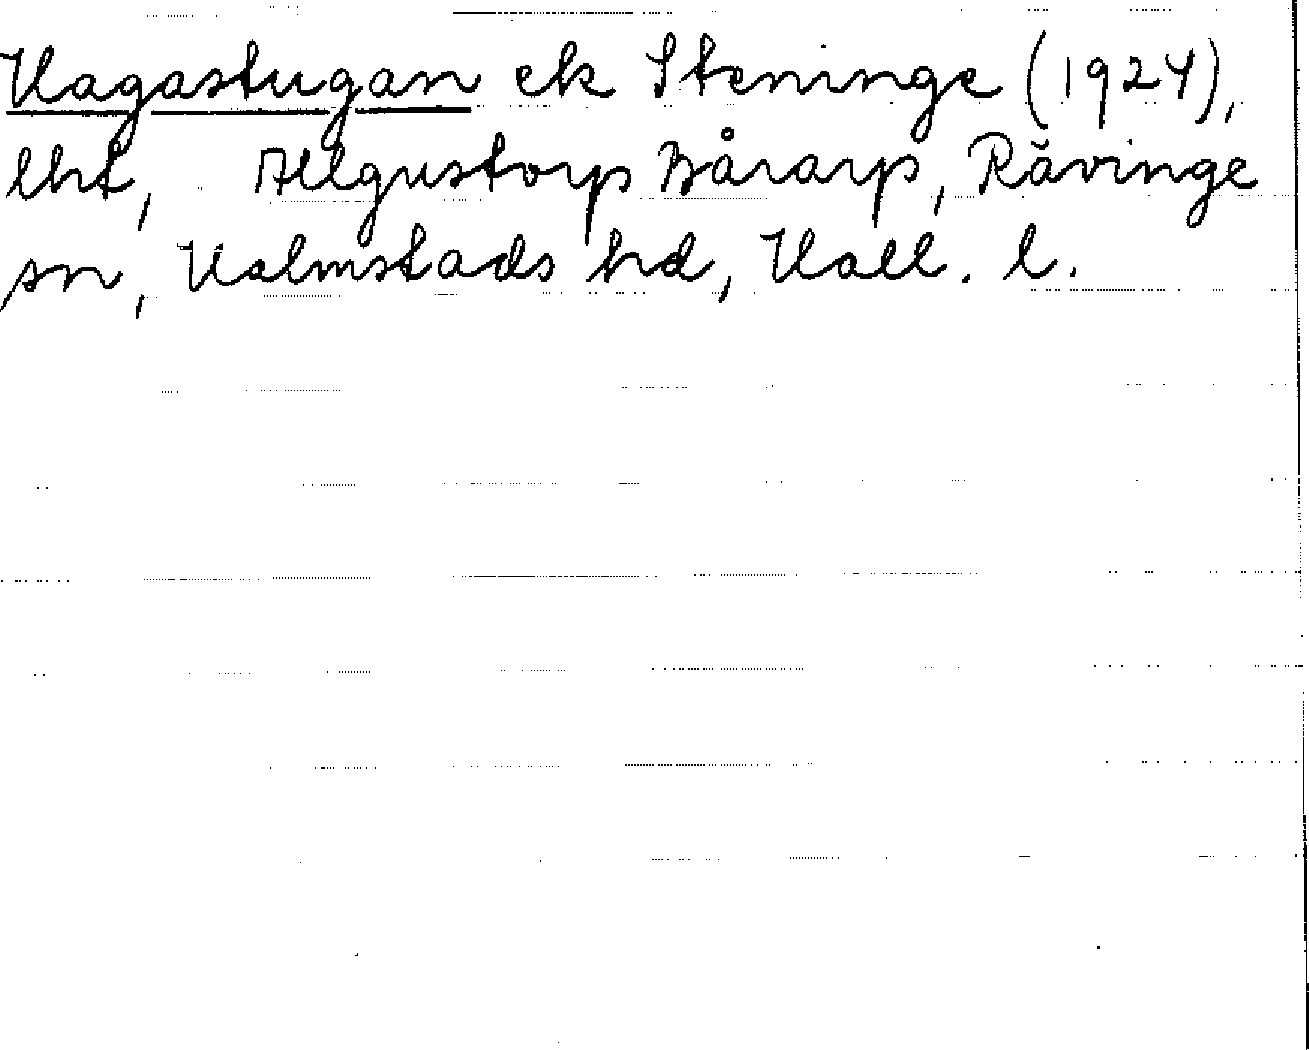 Hagastugan ek Steninge (1924),
lht, Allgustorp Bårarp, Rävinge
sn, Halmstads hd, Hall. l.